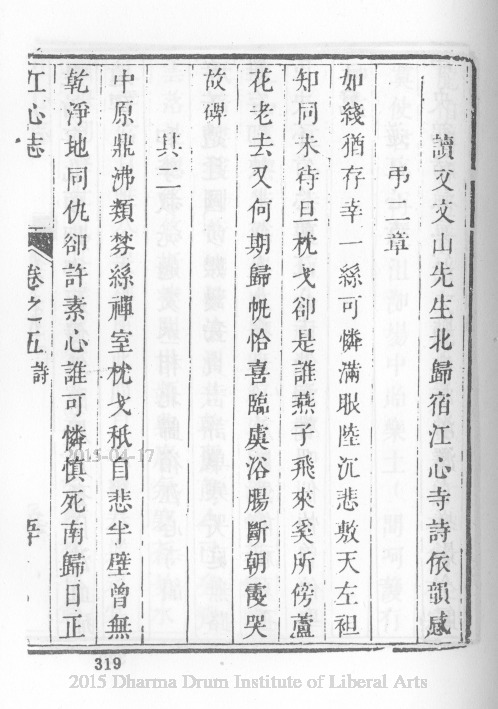 讀文文山先生北歸宿江心寺詩依韻感
弔二章
如綫猶存幸一絲可憐滿眼陸沉悲敷天左袒
知同未待旦枕戈卻是誰燕子飛來奚所傍蘆
花老去又何期歸帆恰喜臨虞浴腸斷朝霞哭
故碑
其二
中原鼎沸類棼絲禪室枕戈秖自悲半壁曾無
乾淨地同仇卻許素心誰可憐慎死南歸日正
江心志
卷之五 詩
319
2015-04-17
2015 Dharma Drum Institute of Liberal Arts